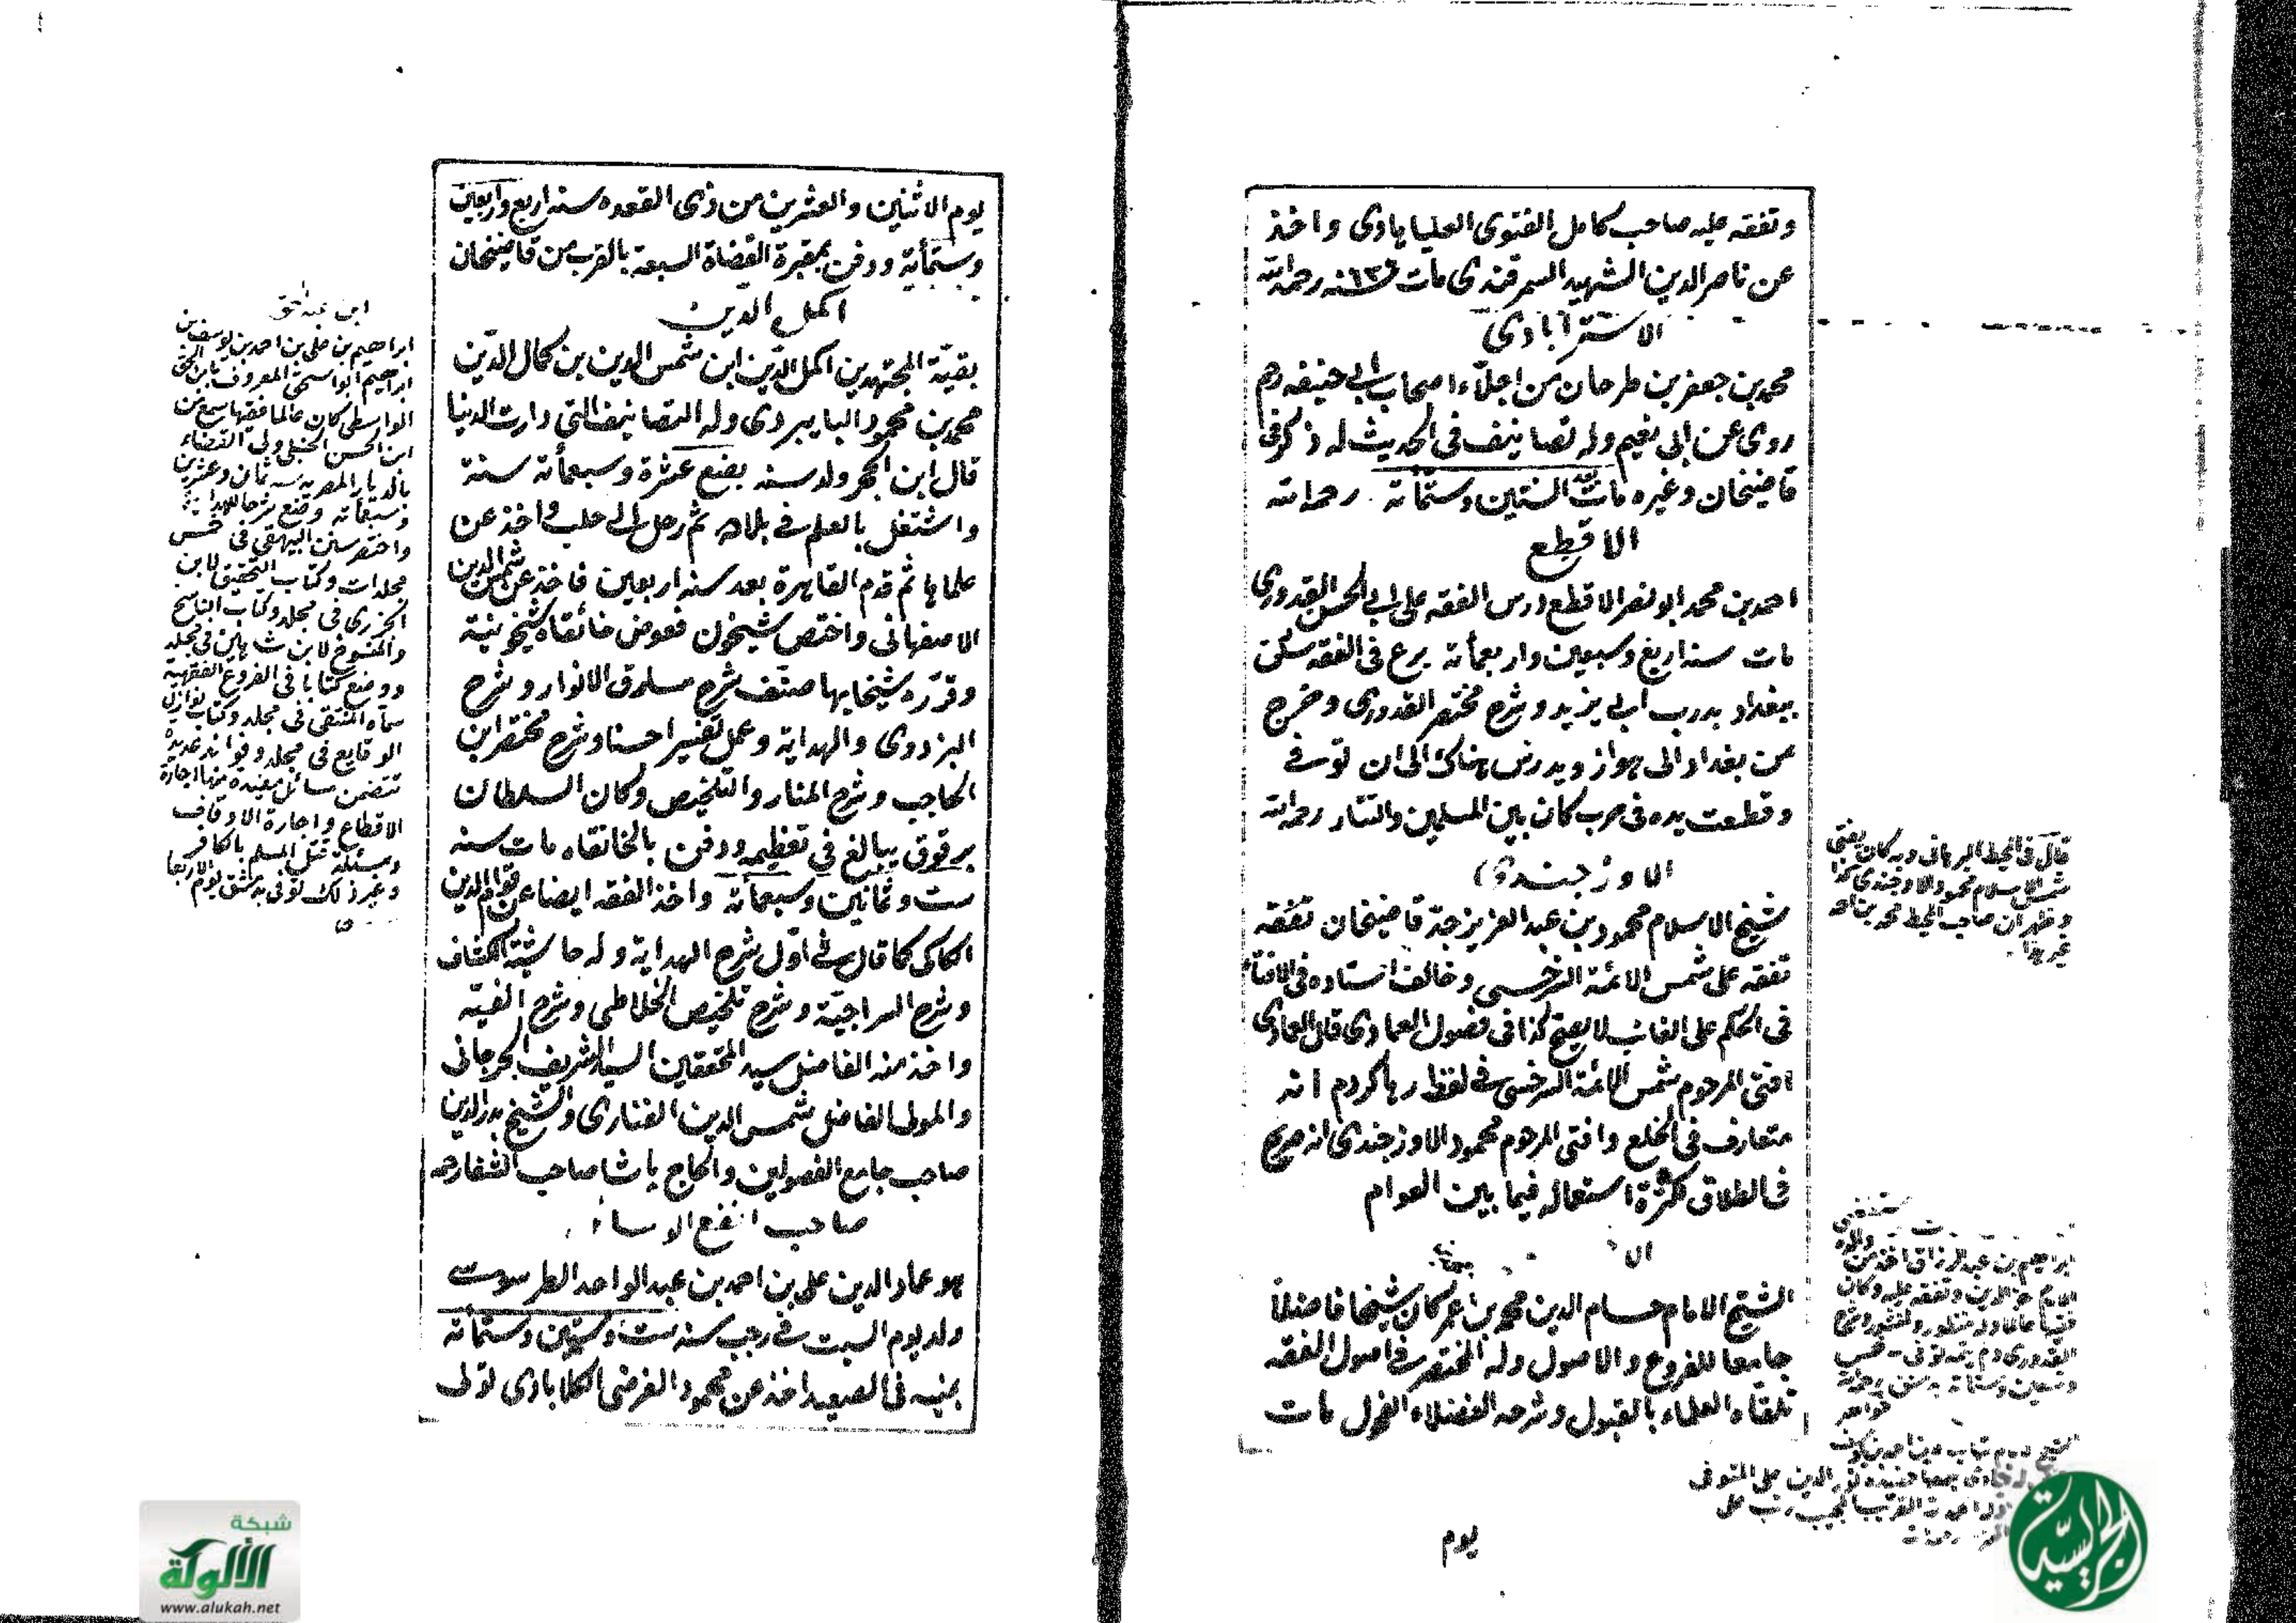 وتفقه عليه صاحب كامل الفتوى العليابادى واخذ
عن ناصر الدين الشهيد السمرقندى مات سنه رحمه الله
الاسترآبادى
محمد بن جعفر بن طرحان من اجلاء اصحاب ابى حنيفه رحم
روى عن ابى نعيم وله تصانيف فى الحديث له ذكر فى
قاضيخان وغيره مات الستين وستمأته رحمه الله
الاقطع
احمد بن محمد ابو نصر الاقطع درس الفقه على ابى الحسن القدورى
مات سنه اربع وسبعين واربعمأته برع فى الفقه سكن
ببغداد بدرب ابى يزيد وشرح مختصر القدورى وخرج
من بغداد الى هواز ويدرس هناك الى ان توفى
وقطعت يده فى حرب كان بين المسلمين والتتار رحمه الله
الاوزجندى
شيخ الاسلام محمود بن عبد العزيز جد قاضيخان تفقه
تفقه على شمس الائمة السرخسى وخالف استاده فى الافتاء
فى الحكم على الغائب لا يصح كذا فى فصول العمادى قال العمادى
افتى المرحوم شمس الائمة السرخسى فى لفظ رها كردم انه
متعارف فى الخلع وافتى المرحوم محمود الاوزجندى انه صريح
فى الطلاق لكثرة استعماله فيما بين العوام
الشيخ الامام حسام الدين محمد بن عمر كان شيخا فاضلا
جامعا للفروع والاصول وله المختصر فى اصول الفقه
تلقاه العلماء بالقبول وشرحه الفضلاء الفحول مات
يوم
قال فى المحيط البرهانى وبه كان يفتى
شيخ الاسلام محمود الاوجندى كذا
وظهر ان صاحب المحيط محمد بن احمد
غيرهما
ابراهيم بن عبد الرزاق اخذ من والده
الدين وتفقه عليه وكان
وله منظور ومنثور وشرح
القدورى ولم يتمه توفى خمس
وتسعين وستمأته بدمشق رحمه الله
جواهر
يوم الاثنين والعشرين من ذى القعده سنه اربع واربعين
وستمأته ودفن بمقبرة القضاة السبعة بالقرب من قاضيخان
اكمل الدين
بقية المجتهدين اكمل الدين ابن شمس الدين بن كمال الدين
محمد بن محمود البايبردى وله التصانيف التى دارت الدنيا
قال ابن الحجر ولد سنه بضع عشرة وسبعمأته سنة
واشتغل بالعلم فى بلاده ثم رحل الى حلب واخذ عن
علمائها ثم قدم القاهرة بعد سنه اربعين فاخذ عن شمس الدين
الاصفهانى واختص شيخون ففوض خانقاه شيخونية
وقرره شيخا بها صنف شرح مشارق الانوار وشرح
البزدوى والهداية وعمل تفسيرا حسنا وشرح مختصر ابن
الحاجب وشرح المنار والتلخيص وكان السلطان
برقوق يبالغ فى تعظيمه ودفن بالخانقاه مات سنه
ست وثمانين وسبعمأته واخذ الفقه ايضا عن قوام الدين
الكاكى كما قال فى اول شرح الهداية وله حاشية الكشاف
وشرح السراجية وشرح تلخيص الخلاطى وشرح الفيّه
واخذ منه الفاضل سيد المحققين السيد الشريف الجرجانى
والمولى الفاضل شمس الدين الفنارى والشيخ بدر الدين
صاحب جامع الفصولين والحاج پاشا صاحب الشفا رحمه
صاحب انفع الوسائل
هو عماد الدين على بن احمد بن عبد الواحد الطرسوسى
ولد يوم السبت فى رجب سنه ست وستين وستمأته
بمنيه فى الصعيد اخذ عن محمود الفرضى الكلابادى تولى
ابن عبد الحق
ابراهيم بن على بن احمد بن يوسف بن
ابراهيم ابو اسحق المعروف بابن الحق
الواسطى كان عالما فقيها سمع من
ابن الحسن الحنبلى ولى القضاء
بالديار المصريه سنه ثمان وعشرين
وسبعمأته وضع شرحا للهدايه
واختصر سنن البيهقى فى خمس
مجلدات وكتاب التحقيق لابن
الجوزى فى مجلد وكتاب الناسخ
والمنسوخ لابن شاهين فى مجلد
ووضع كتابا فى الفروع الفقهية
سماه المنتقى فى مجلد وكتاب نوازل
الوقايع فى مجلد وفوائد عديده
تتضمن مسائل مفيده منها اجارة
الاقطاع واجارة الاوقاف
ومسئلة قتل المسلم بالكافر
وغير ذلك توفى بدمشق يوم الاربعا
شبكة
الألوكة
www.alukah.net